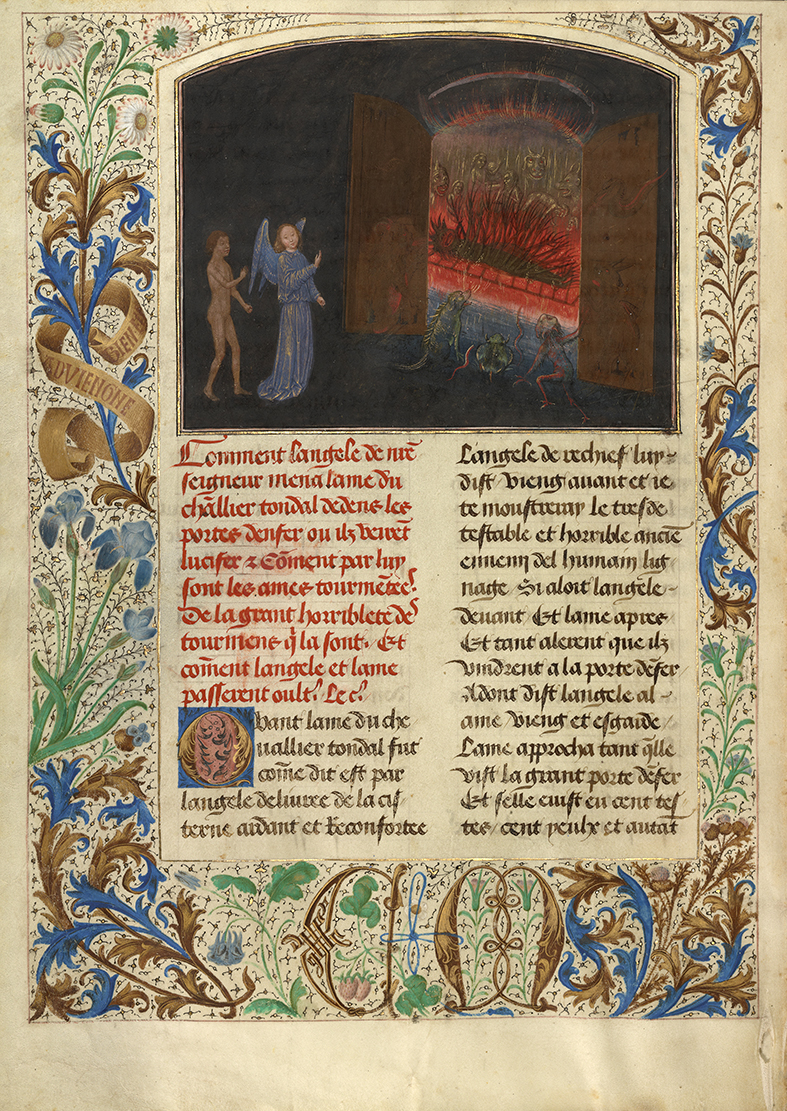 BIEN
ADVIENGNE
Comment langele de nr̄e
seigneur mena lame du
chl̄lier tondal dedens les
portes denfer ou ilz veirēt
lucifer ⁊ Cōment par luy
sont les ames tourmētéē.
De la grant horriblete des
tourmens q̄ la sont. Et
cōment langele et lame
passerent oultꝰ. Le cꝰ.
Quant lame du che
uallier tondal fut
cōme dit est par
langele deliuree de la cis
terne ardant et Reconfortee
Langele de rechief luy
dist / vieng auant et ie
te moustreray le tres de
testable et horrible anciē
ennemi del humain lig
nage / Si aloit langele
deuant Et lame apres
Et tant alerent que ilz
vindrent a la porte dēfer
Adont dist langele al
ame vieng et esgarde /
Lame approcha tant q̄lle
vist la grant porte dēfer
Et selle euist eu cent tes
tes / cent yeulx et autāt
C M